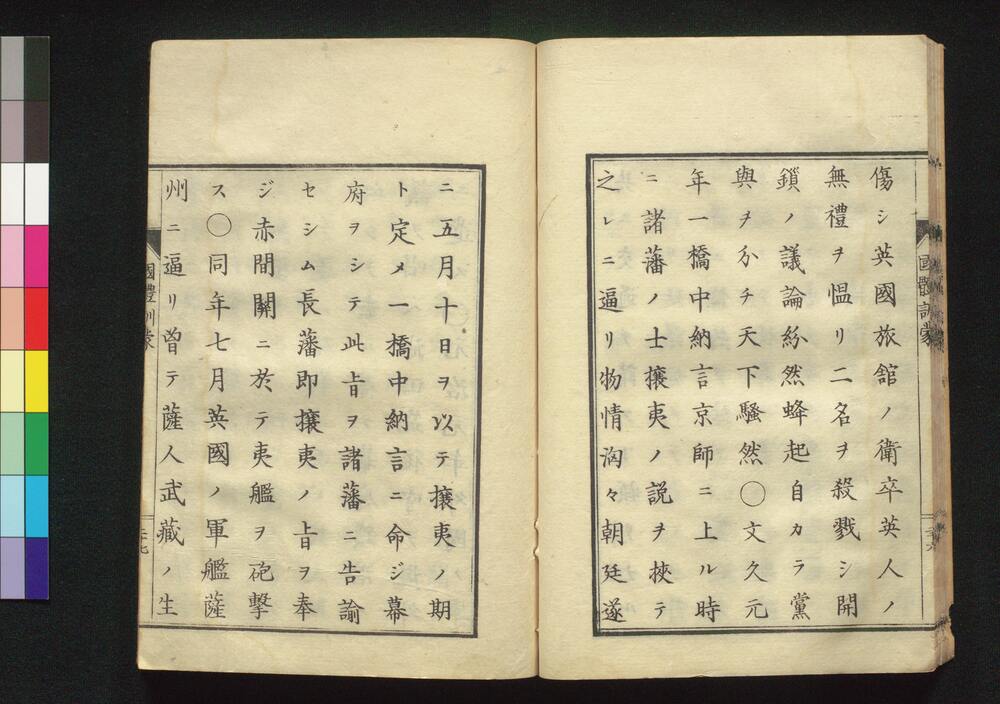 傷シ英國旅舘ノ衛卒英人ノ
無禮ヲ愠リ二名ヲ殺戮シ開
鎖ノ議論紛然蜂起自カラ黨
與ヲ分チ天下騷然〇文久元
年一橋中納言京師ニ上ル時
ニ諸藩ノ士攘夷ノ説ヲ挾テ
之レニ逼リ物情洶々朝廷遂
國體訓蒙
二十六
ニ五月十日ヲ以テ攘夷ノ期
ト定メ一橋中納言ニ命ジ幕
府ヲシテ此旨ヲ諸藩ニ告諭
セシム長藩即攘夷ノ旨ヲ奉
ジ赤間關ニ於テ夷艦ヲ砲撃
ス〇同年七月英國ノ軍艦薩
州ニ逼リ曽テ薩人武藏ノ生
國體訓蒙
二十七